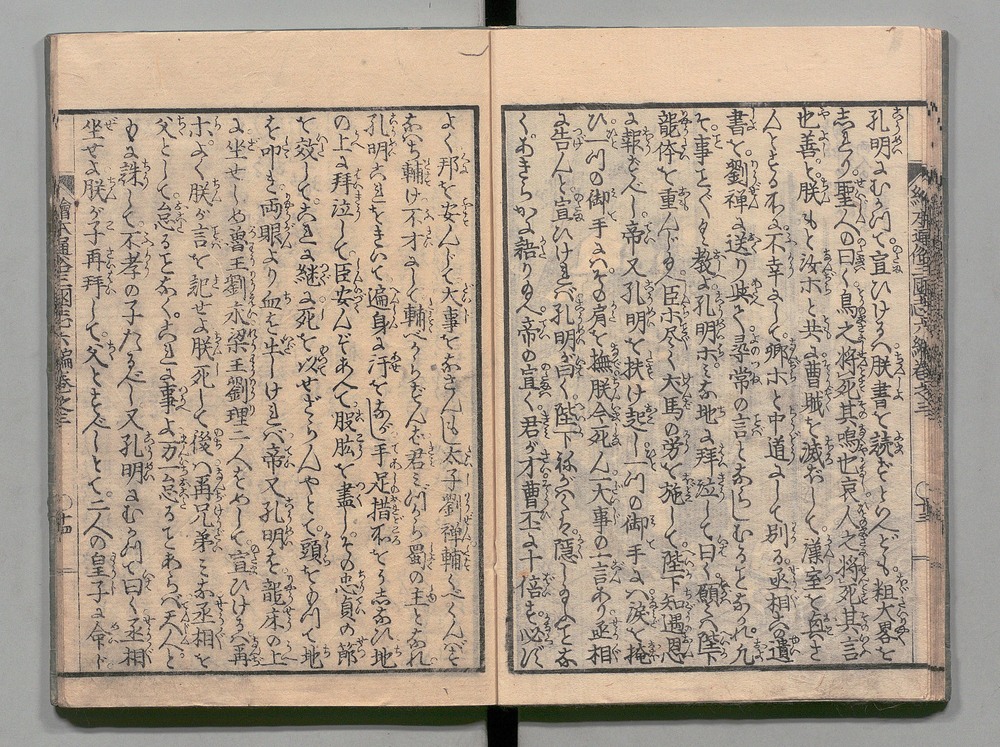 孔明にむかつて宣ひけるハ朕書を読ずといへども粗大畧を
しれり聖人の曰く鳥之将死其鳴也哀人之将死其言
也善と朕もと汝ホと共に曹賊を滅ぼして漢室を興さ
んとするに不幸にして卿ホと中道にして別る丞相此遺
書を劉禅に送り与て尋常の言となさしむることなかれ凡
そ事ごとく教よ孔明ホミな地に拝泣して曰く願くハ陛下
龍体を重んじ臣ホ尽く犬馬の労を施して陛下知遇の恩
に報ずべし帝又孔明を扶け起し一ツの御手にハ涙を掩
ひ一ツの御手にハその肩を撫朕今死ん一大事の一言あり丞相
に告んと宣ひけれバ孔明が曰く陛下ねがハくハ隠し給ふことな
くあきらかに語り給へ帝の宣く君が才曹丕に十倍す必ず
よく邦を安んじて大事をなさんもし太子劉禅輔くべくんバす
なハち輔け不才にして輔べからずんバ君ミづから蜀の王となれ
孔明これをきいて遍身に汗をながし手足措所をうしなひ地
の上に拝泣して臣安んぞあへて股肱を盡しその忠貞の節
を效してこれに継に死を以せざらんやとて頭をもつて地
を叩き両眼より血を出しけれバ帝又孔明を龍床の上
に坐せしめ魯王劉永梁王劉理二人をめして宣ひけるハ爾
ホよく朕が言を記せよ朕死して後ハ再兄弟ミな丞相を
父として怠ることなくこれに事よ万一怠るてあらバ天人と
もに誅して不孝の子たるべし又孔明にむかつて曰く丞相
坐せよ朕が子再拝して父とすべしとて二人の皇子に命じ
繪本通俗三國志六編巻之三
十三
繪本通俗三國志六編巻之三
十四